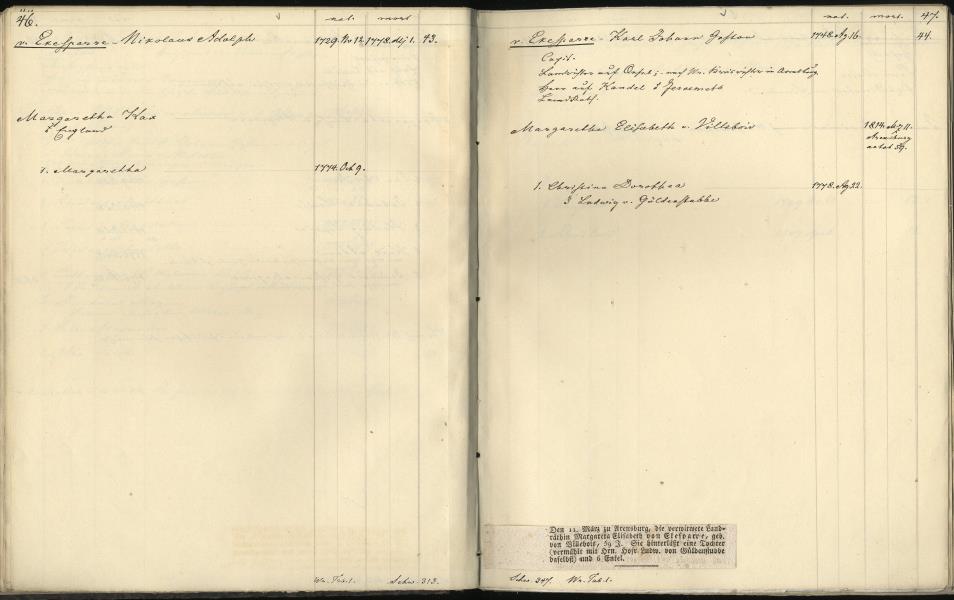 46.
nat. mort.
v. Ekesparre - Nikolaus Adolph 1729. Nv 12. 1778. Mz 1. 43.
Margaretha Kax
d England
1. Margaretha 1774. Oct 9.
Wr. Tab. 1. Schw. 313.
nat. mort. 47.
v. Ekesparre - Karl Johann Gustav 1748. Ag 16. 44.
Capit.
Landrichter auf Oesel; - nach Wr. Kreisrichter in Arensburg
Herr auf Kandel &
Landrath.
Margaretha Elisabeth v. Villebois 1814. Mz 11.
Arensburg
aetat 59.
1. Christina Dorothea 1778. Ag 22.
Ludwig v. Güldenstubbe
Den 11. März zu Arensburg, die verwitwete Land-
räthin Margareta Elisabeth von Ekesparre, geb.
von Villebois, 59 J. Sie hinterläßt eine Tochter
(vermählt mit Hrn. Hofr. Ludw. von Güldenstubbe
daselbst) und 6 Enkel.
Schw. 347. Wr. Tab. 1.